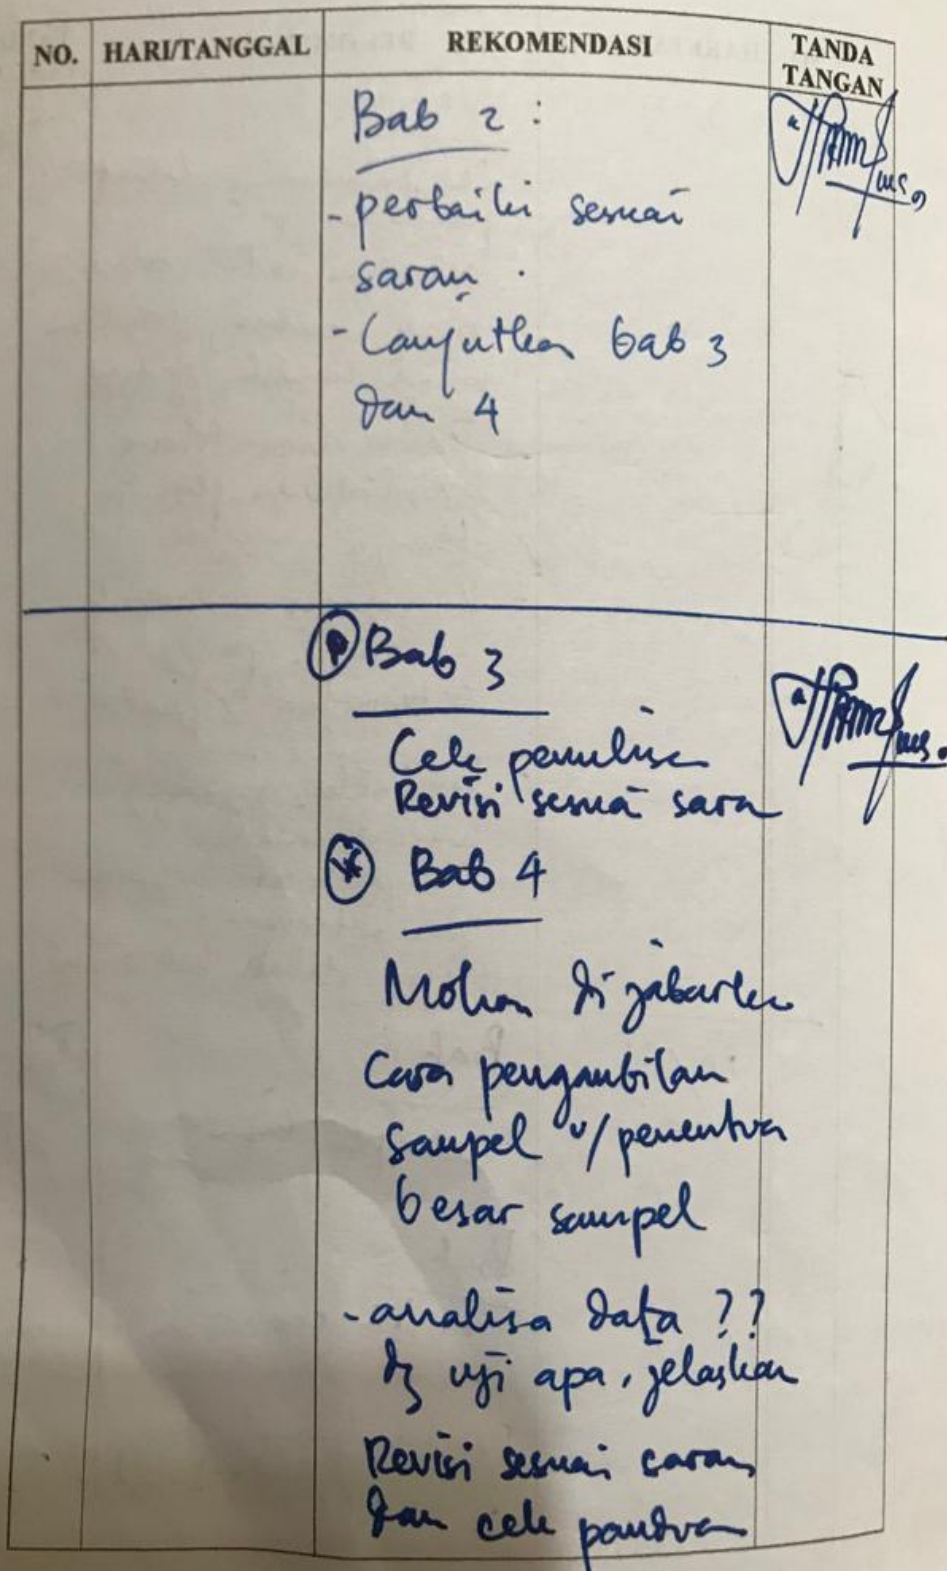 NO. HARI/TANGGAL REKOMENDASI TANDA TANGAN
Bab 2 :
- perbaiki sesuai
saran .
- Lanjutkan bab 3
dan 4
Bab 3
Cek penulisan
Revisi sesuai saran
Bab 4
Mohon dijabarkan
Cara pengambilan
sampel u/penentuan
besar sampel
- analisa data ??
dg uji apa, jelaskan
Revisi sesuai saran
dan cek panduan